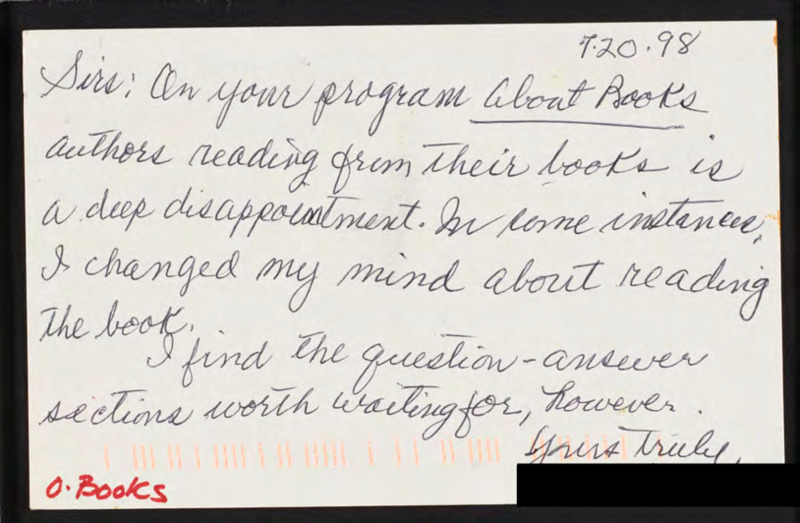 7.20.98
Sirs: On your program About Books
authors reading from their books is
a deep disappointment. In some instances,
I changed my mind about reading
the book.
I find the question-answer
sections worth waiting for, however.
Yours truly,
O. Books